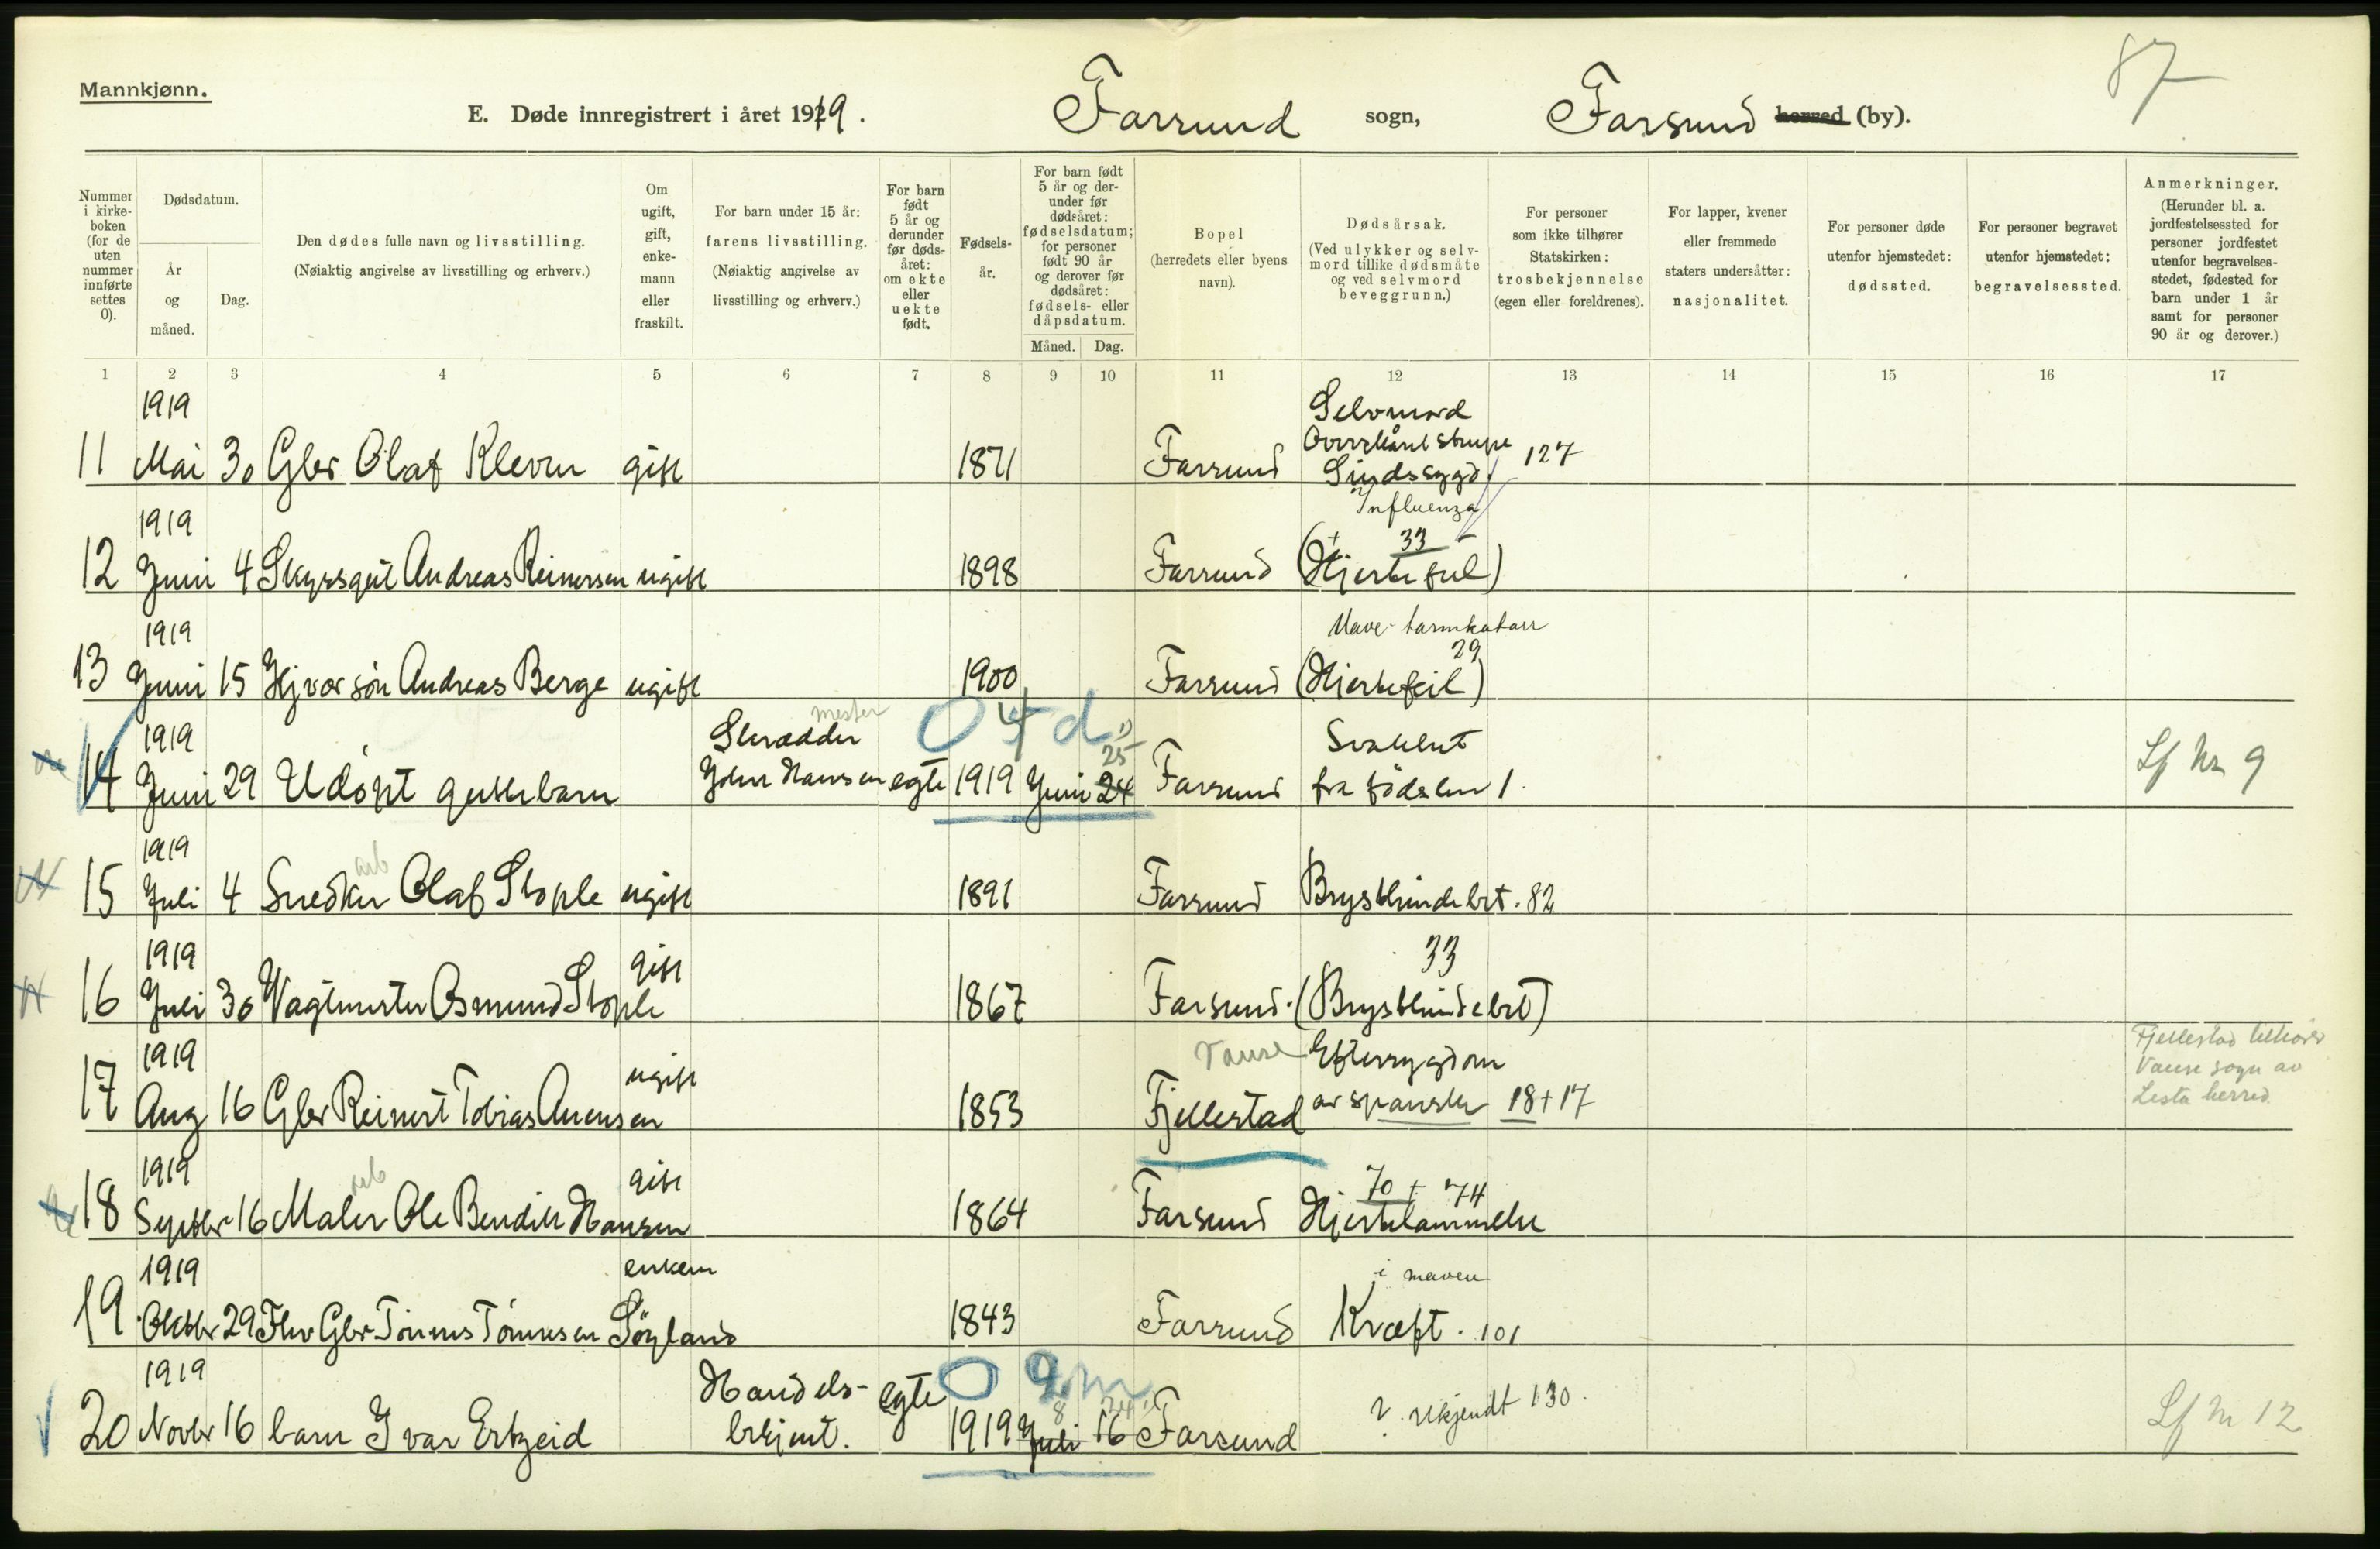 Mannkjønn.
87
E. Døde innregistrert i året 1919.
Farsund sogn, Farsund herred (by).
Nummer i kirkeboken (for de uten nummer innførte settes 0).
Dødsdatum.
År og måned.
Dag.
Den dødes fulle navn og livsstilling.
(Nøiaktig angivelse av livsstilling og erhverv.)
Om ugift, gift, enkemann eller fraskilt.
For barn under 15 år: farens livsstilling.
(Nøiaktig angivelse av livsstilling og erhverv.)
For barn født 5 år og derunder før dødsåret: om ekte eller uekte født.
Fødselsår.
For barn født 5 år og derunder før dødsåret: fødselsdatum; for personer født 90 år og derover før dødsåret: fødsels- eller dåpsdatum.
Måned. Dag.
Bopel
(herredets eller byens navn).
Dødsårsak.
(Ved ulykker og selvmord tillike dødsmåte og ved selvmord beveggrunn.)
For personer som ikke tilhører Statskirken: trosbekjennelse (egen eller foreldrenes).
For lapper, kvener eller fremmede staters undersåtter: nasjonalitet.
For personer døde utenfor hjemstedet: dødssted.
For personer begravet utenfor hjemstedet: begravelsessted.
Anmerkninger.
(Herunder bl. a. jordfestelsessted for personer jordfestet utenfor begravelsesstedet, fødested for barn under 1 år samt for personer 90 år og derover.)
1 2 3 4 5 6 7 8 9 10 11 12 13 14 15 16 17
1919 Selvmord
Overskåret strupe
11 Mai 30 Gbr Olaf Kleven gift 1871 Farsund Sindssygd. 127
1919 Influenza
+ 33
12 Juni 4 Andreas Reinersen ugift 1898 Farsund (Hjertefeil)
1919 Mave-tarmkatarr
29
13 Juni 15 Andreas Berge ugift 1900 Farsund (Hjertefeil)
0 4 d.
1919 Skrædder mester 25 Svakhet
14 Juni 29 Udøpt guttebarn John Hansen egte 1919 Juni 24 Farsund fra fødselen 1. Lf Nr 9
1919 arb
15 Juli 4 Snedker Olaf Stople ugift 1891 Farsund Brysthindebet. 82
1919 gift 33
16 Juli 30 Vagtmester Osmund Stople 1867 Farsund. (Brysthindebet)
1919 ugift Vanse Eftersygdom Fjellestad tilhører
Vanse sogn av
17 Aug 16 Gbr Reinert Tobias Arensen 1853 Fjellestad av spanske 18+17 Lista herred
1919 arb gift 70 + 74
18 Septbr 16 Maler Ole Bendik Hansen 1864 Farsund Hjertelammelse
1919 enkem i maven
19 Oktbr 29 Fhv Gbr Tønnes Tønnesen 1843 Farsund Kræft. 101
1919 Handels- egte 0 9 m
8 24
20 Novbr 16 barn Ivar Ertzeid betjent. 1919 Juli 16 Farsund ? ukjendt 130. Lf Nr 12